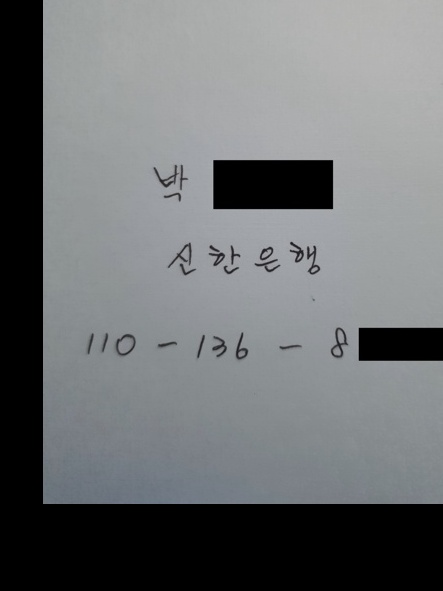 박
신한은행
110 - 136 - 8